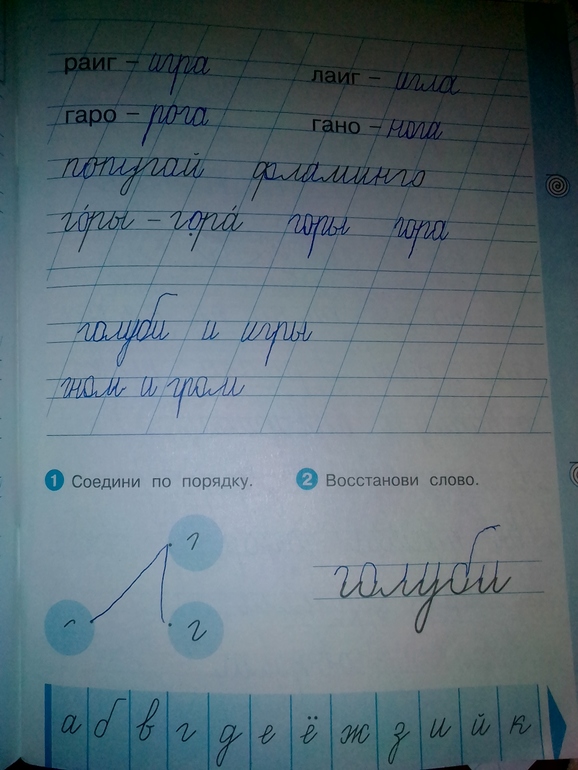 раиг – игра лаиг – игла
гаро – рога гано – нога
попугай фламинго
го́ры – гора́ горы гора
голуби и игры
гном и гром
1 Соедини по порядку. 2 Восстанови слово.
г
голуби
г
а б в г д е ё ж з и й к